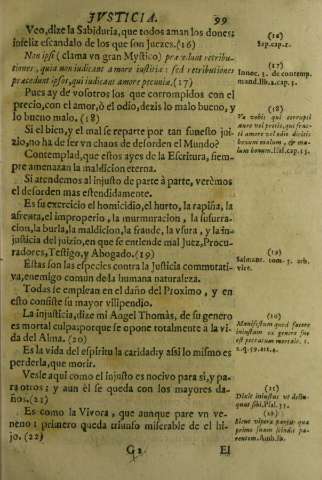 JVSTICIA. 99
Veo, dize la Sabiduria, que todos aman los dones:
infeliz escandalo de los que son Juezes. (16)
Non ipsi (clama vn gran Mystico) præcedunt retribu-
tiones, quia non iudicant amore iustitiæ: sed retributiones
præcedunt ipsos, qui iudicant amore pecunia. (17)
Pues ay de vosotros los que corrompidos con el
precio, con el amor, ò el odio, dezis lo malo bueno, y
lo bueno malo. (18)
Si el bien, y el mal se reparte por tan funesto joi-
zio, no ha de ser vn chaos de desorden el Mundo?
Contemplad, que estos ayes de la Escritura, siem-
pre amenazan la maldicion eterna.
Si atendemos al injusto de parte à parte, verèmos
el desorden mas estendidamente.
Es su exercicio el homicidio, el hurto, la rapiña, la
afrenta, el improperio, la murmuracion, la susurra-
cion, la burla, la maldicion, la fraude, la vsura, y la in-
justicia del juizio, en que se entiende mal Juez, Procu-
radores, Testigo, y Abogado. (19)
Estas son las especies contra la Justicia commutati-
va, enemigo comun de la humana naturaleza.
Todas se emplean en el daño del Proximo, y en
esto consiste su mayor vilipendio.
La injusticia, dize mi Angel Thomàs, de su genero
es mortal culpa; porque se opone totalmente a la vi-
da del Alma. (20)
Es la vida del espiritu la caridad; y asi lo mismo es
perderla, que morir.
Vese aqui como el injusto es nocivo para si, y pa-
ra otros; y aun èl se queda con los mayores da-
ños. (21)
Es como la Vivora, que aunque pare vn ve-
neno; primero queda triunfo miserable de el hi-
jo. (22)
G 2 El
(16)
Sap. cap. 1.
(17)
Innoc. 3. de contemp.
mund. lib. 2. cap. 3.
(18)
Væ vobis qui corrupti
amore vel odio dicitis
bonum malum, & ma-
lum bonum. Isai. cap. 13.
(19)
Salmant. tom. 3. arb.
vire.
(20)
Manifestum quod facere
iniustum ex genere suo
est peccatum mortale. 2.
2. q. 59. art. 4.
(21)
Dixit iniustus vt delin-
quat sibi. Psal. 35.
(22)
parentum. Amb. lib.